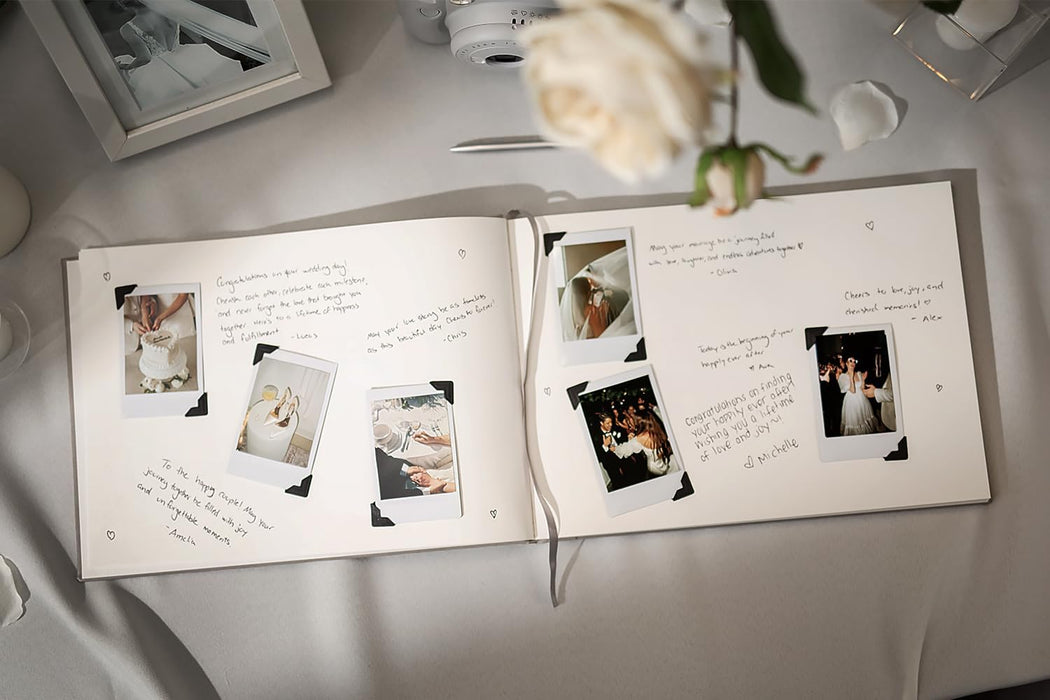 Congratulations on your wedding day!
Cherish each other, celebrate each milestone,
and never forget the love that brought you
together. Here's to a lifetime of happiness
and fulfillment. - Lucas
May your love story be as timeless
as this beautiful day. Cheers to forever!
- Chris
To the happy couple! May your
journey together be filled with joy
and unforgettable moments.
- Amelia
May your marriage be a journey filled
with love, laughter, and endless adventures together
- Olivia
Cheers to love, joy, and
cherished memories!
- Alex
Today is the beginning of your
happily ever after
Ava
Congratulations on finding
your happily ever after!
Wishing you a lifetime
of love and joy
Michelle